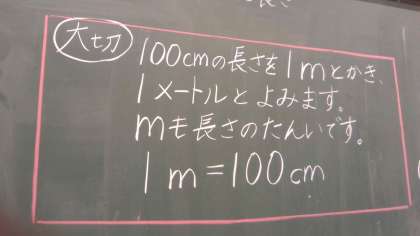 大切
100cmの長さを1mとかき、
1メートルとよみます。
mも長さのたんいです。
1m=100cm